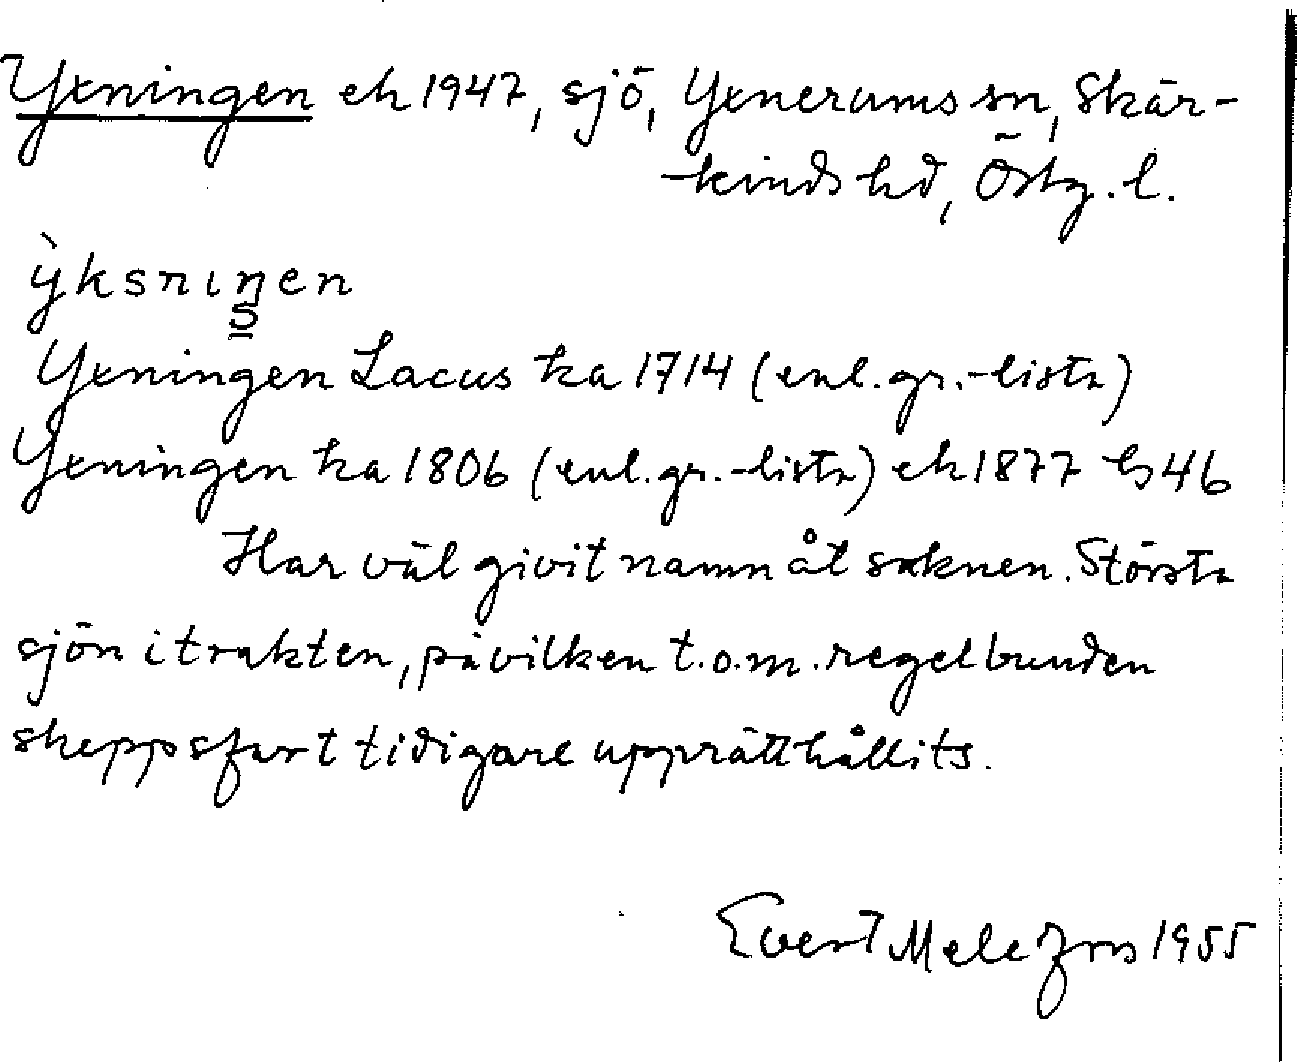 Yxningen ek 1947, sjö, Yxnerums sn, Skär-
kinds hd, Östg. l.
ỳksniŋen
S
Yxningen Lacus ka 1714 (enl. gr.-lista)
Yxningen ka 1806 (enl. gr.-lista) ek 1877 bl 46
Har väl givit namn åt soknen. Största
sjön i trakten, på vilken t.o.m. regelbunden
skeppsfart tidigare upprätthållits.
Evert Melefors 1955